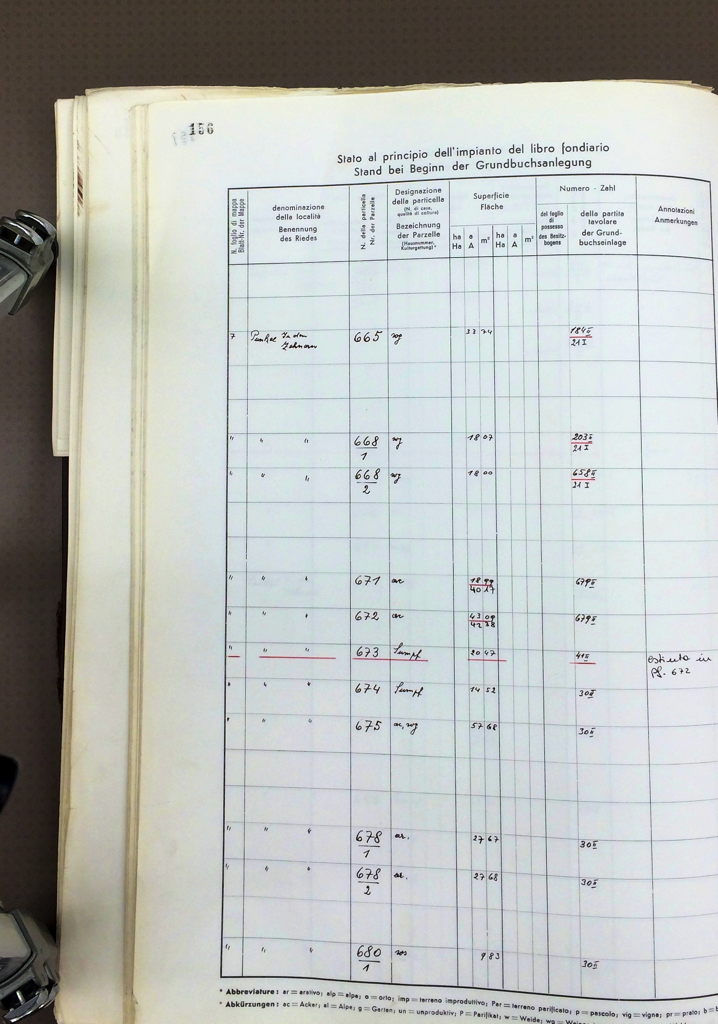 156
Stato al principio dell'impianto del libro fondiario
Stand bei Beginn der Grundbuchsanlegung
N. foglio di mappa
Blatt-Nr. der Mappe
denominazione
della località
Benennung
des Riedes
N. della particella
Nr. der Parzelle
Designazione
della particella
(N. di casa,
qualità di coltura)
Bezeichnung
der Parzelle
(Hausnummer,
Kulturgattung)
Superficie
Fläche
ha a m² ha a m²
Ha A Ha A
Numero - Zahl
del foglio
di
possesso
des Besitz-
bogens
della partita
tavolare
der Grund-
buchseinlage
Annotazioni
Anmerkungen
7 665 33 74 184 II
21 I
" " " 668/1 18 07 203 II
21 I
" " " 668/2 18 00 658 II
21 I
" " " 671 ac 18 99 679 II
40 17
" " " 672 ac 43 09 679 II
42 38
" " " 673 Sumpf 20 47 41 II estinta in
pf. 672
" " " 674 Sumpf 14 52 30 II
" " " 675 57 68 30 II
" " " 678/1 ar. 27 67 30 II
" " " 678/2 ar. 27 68 30 II
" " " 680/1 9 83 30 II
* Abbreviature: ar = arativo; alp = alpe; o = orto; imp = terreno improduttivo; Par = terreno parificato; p = pascolo; vig = vigna; pr = prato; b = b
* Abkürzungen: ac = Acker; al = Alpe; g = Garten; un = unproduktiv; P = Parifikat; w = Weide; wg =